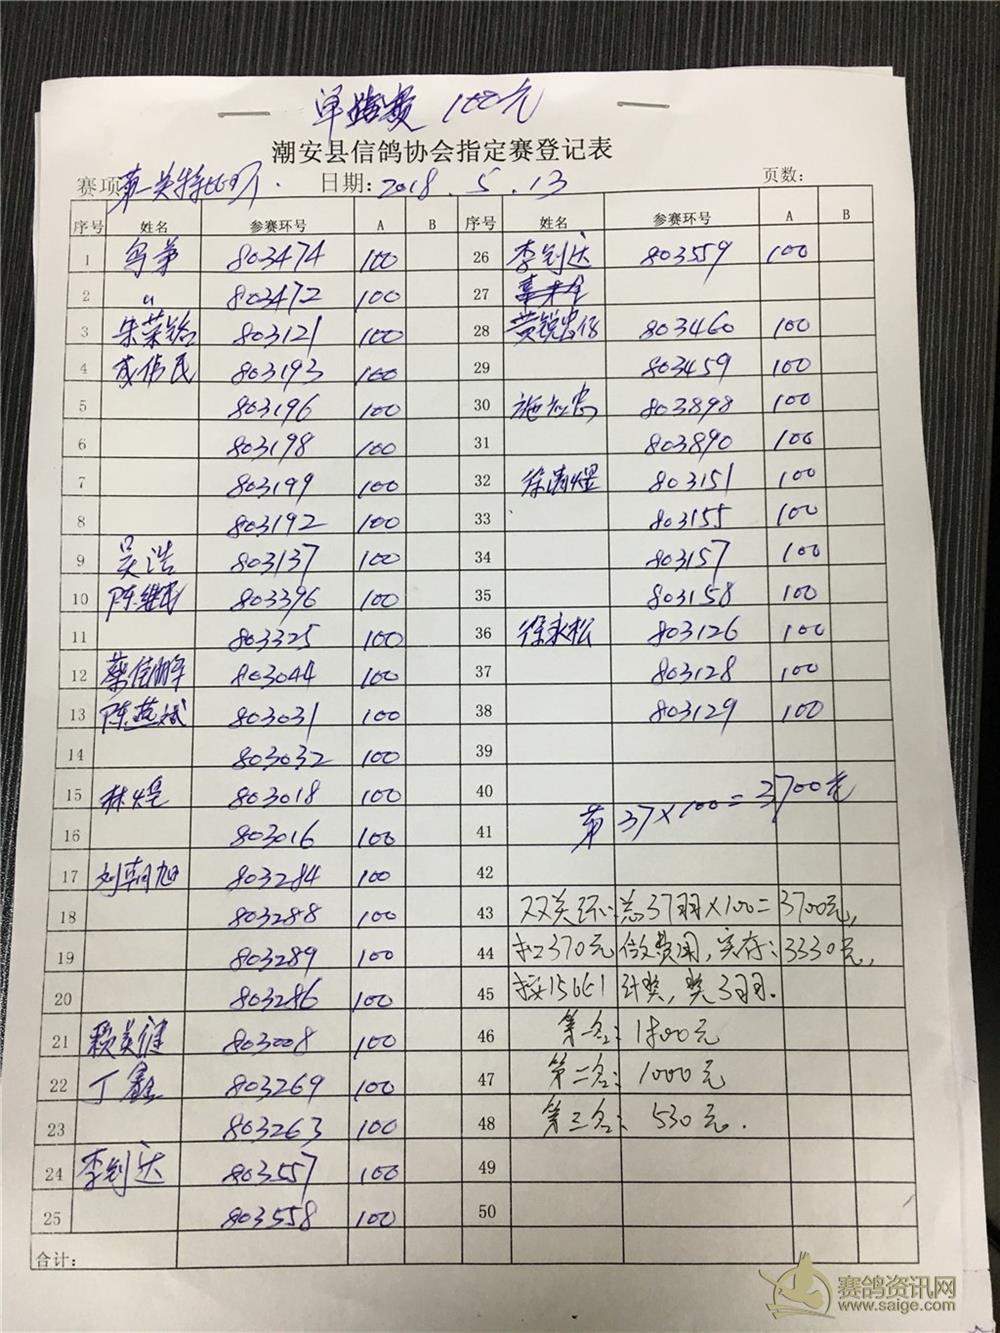 单 赛 100元
潮安县信鸽协会指定赛登记表
赛项 第一关特比 日期: 2018.5.13 页数:
序号 姓名 参赛环号 A B 序号 姓名 参赛环号 A B
1 803474 100 26 李钊达 803559 100
2 〃 803472 100 27
3 朱荣 803121 100 28 黄锐忠 803460 100
4 伟民 803193 100 29 803459 100
5 803196 100 30 施 忠 803898 100
6 803198 100 31 803890 100
7 803199 100 32 徐 803151 100
8 803192 100 33 803155 100
9 吴浩 803137 100 34 803157 100
10 陈继 803396 100 35 803158 100
11 803325 100 36 徐永松 803126 100
12 蔡信 803044 100 37 803128 100
13 陈 斌 803031 100 38 803129 100
14 803032 100 39
15 林煜 803018 100 40
16 803016 100 41 37×100=3700元
17 刘朝旭 803284 100 42
18 803288 100 43 双关环:总37羽×100=3700元,
19 803289 100 44 扣370元 费用,实存:3330元,
20 803286 100 45 按15比1计奖,奖3羽.
21 赖英健 803008 100 46 第一名:1800元
22 丁鑫 803269 100 47 第二名:1000元
23 803263 100 48 第三名:530元.
24 李钊达 803557 100 49
25 803558 100 50
合计:
赛鸽资讯网
www.saige.com